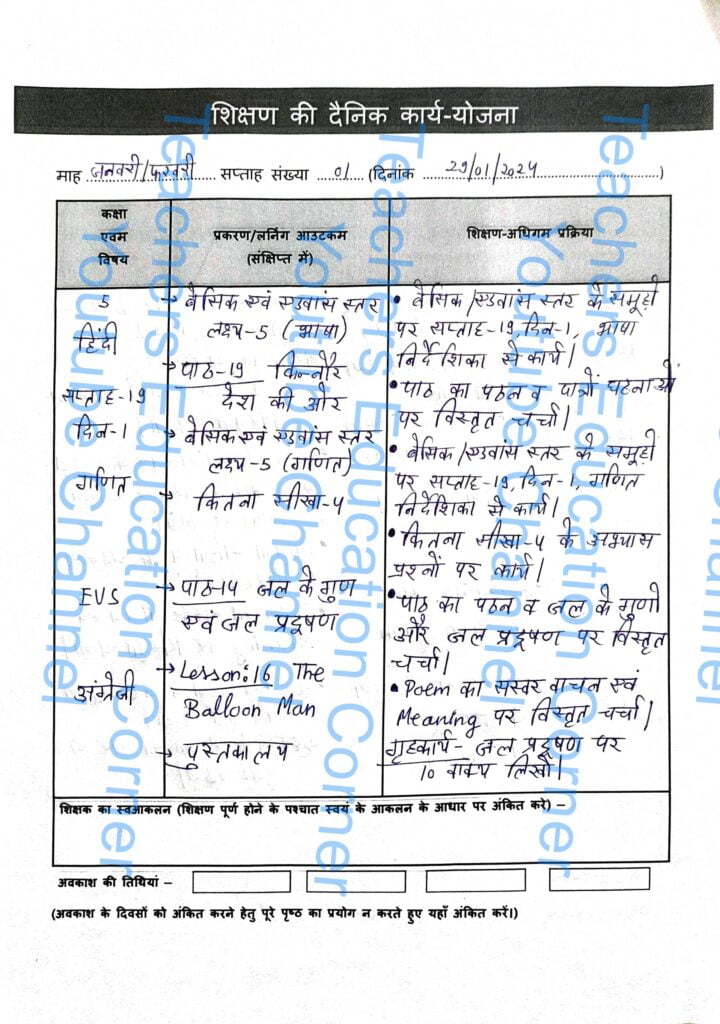 शिक्षण की दैनिक कार्य-योजना
माह जनवरी/फरवरी सप्ताह संख्या 01 (दिनांक 29/01/2024)
कक्षा
एवम
विषय
प्रकरण/लर्निंग आउटकम
(संक्षिप्त में)
शिक्षण-अधिगम प्रक्रिया
5
हिंदी
सप्ताह-19
दिन-1
गणित
EVS
अंग्रेजी
→ बेसिक एवं एडवांस स्तर
लक्ष्य-5 (भाषा)
→ पाठ-19 किन्नौर
देश की ओर
→ बेसिक एवं एडवांस स्तर
लक्ष्य-5 (गणित)
→ कितना सीखा-4
→ पाठ-14 जल के गुण
एवं जल प्रदूषण
→ Lesson:16 The
Balloon Man
→ पुस्तकालय
• बेसिक/एडवांस स्तर के समूहों
पर सप्ताह-19, दिन-1, भाषा
निर्देशिका से कार्य।
• पाठ का पठन व पात्रों घटनाओं
पर विस्तृत चर्चा।
• बेसिक/एडवांस स्तर के समूहों
पर सप्ताह-19, दिन-1, गणित
निर्देशिका से कार्य।
• कितना सीखा-4 के अभ्यास
प्रश्नों पर कार्य।
• पाठ का पठन व जल के गुणों
और जल प्रदूषण पर विस्तृत
चर्चा।
• Poem का सस्वर वाचन एवं
Meaning पर विस्तृत चर्चा।
गृहकार्य- जल प्रदूषण पर
10 वाक्य लिखो।
शिक्षक का स्वआकलन (शिक्षण पूर्ण होने के पश्चात स्वयं के आकलन के आधार पर अंकित करे) –
अवकाश की तिथियां –
(अवकाश के दिवसों को अंकित करने हेतु पूरे पृष्ठ का प्रयोग न करते हुए यहाँ अंकित करें।)
Teachers Education Corner
Youtube Channel
Teachers Education Corner
Youtube Channel
Teachers Education Corner
Youtube Channel